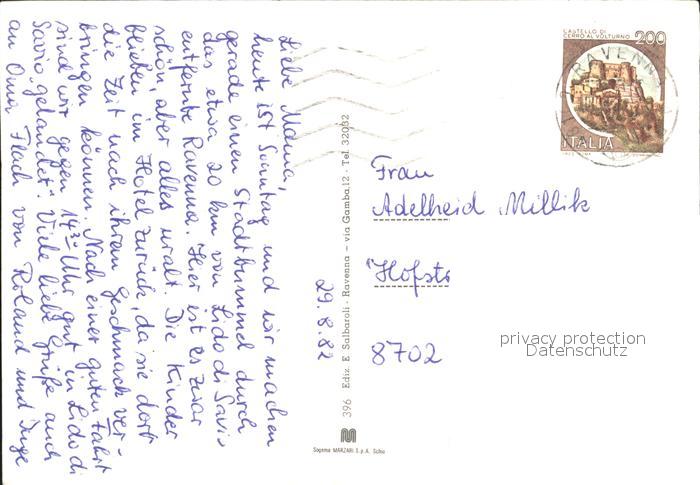 Liebe Mama,
heute ist Sonntag und wir machen
gerade einen Stadtbummel durch
das etwa 20 km von Lido di Savio
entfernte Ravenna. Hier ist es zwar
schön, aber alles uralt. Die Kinder
blieben im Hotel zurück, da sie dort
die Zeit nach ihrem Geschmack ver-
bringen können. Nach einer guten Fahrt
sind wir gegen 14³⁰ Uhr gut in Lido di
Savio „gelandet". Viele liebe Grüße auch
an Oma Flach von Roland und Inge
29.8.82
396 Ediz. E Salbaroli - Ravenna - via Gamba,12 - Tel. 32032
Sogema MARZARI S.p.A. Schio
CASTELLO DI
CERRO AL VOLTURNO 200
ITALIA
RAVENNA
Frau
Adelheid Millik
Hofstr
8702
privacy protection
Datenschutz